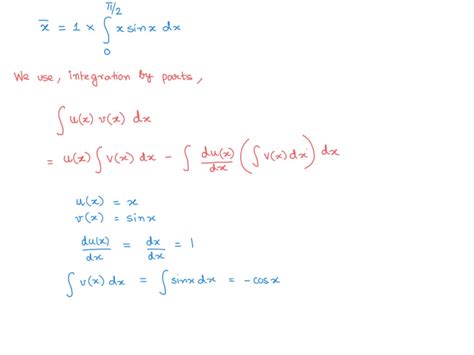 x̄ = 1 × ∫₀^{π/2} x sinx dx
We use, integration by parts,
∫ u(x) v(x) dx
= u(x) ∫ v(x) dx − ∫ du(x)/dx (∫ v(x) dx) dx
u(x) = x
v(x) = sinx
du(x)/dx = dx/dx = 1
∫ v(x) dx = ∫ sinx dx = −cosx